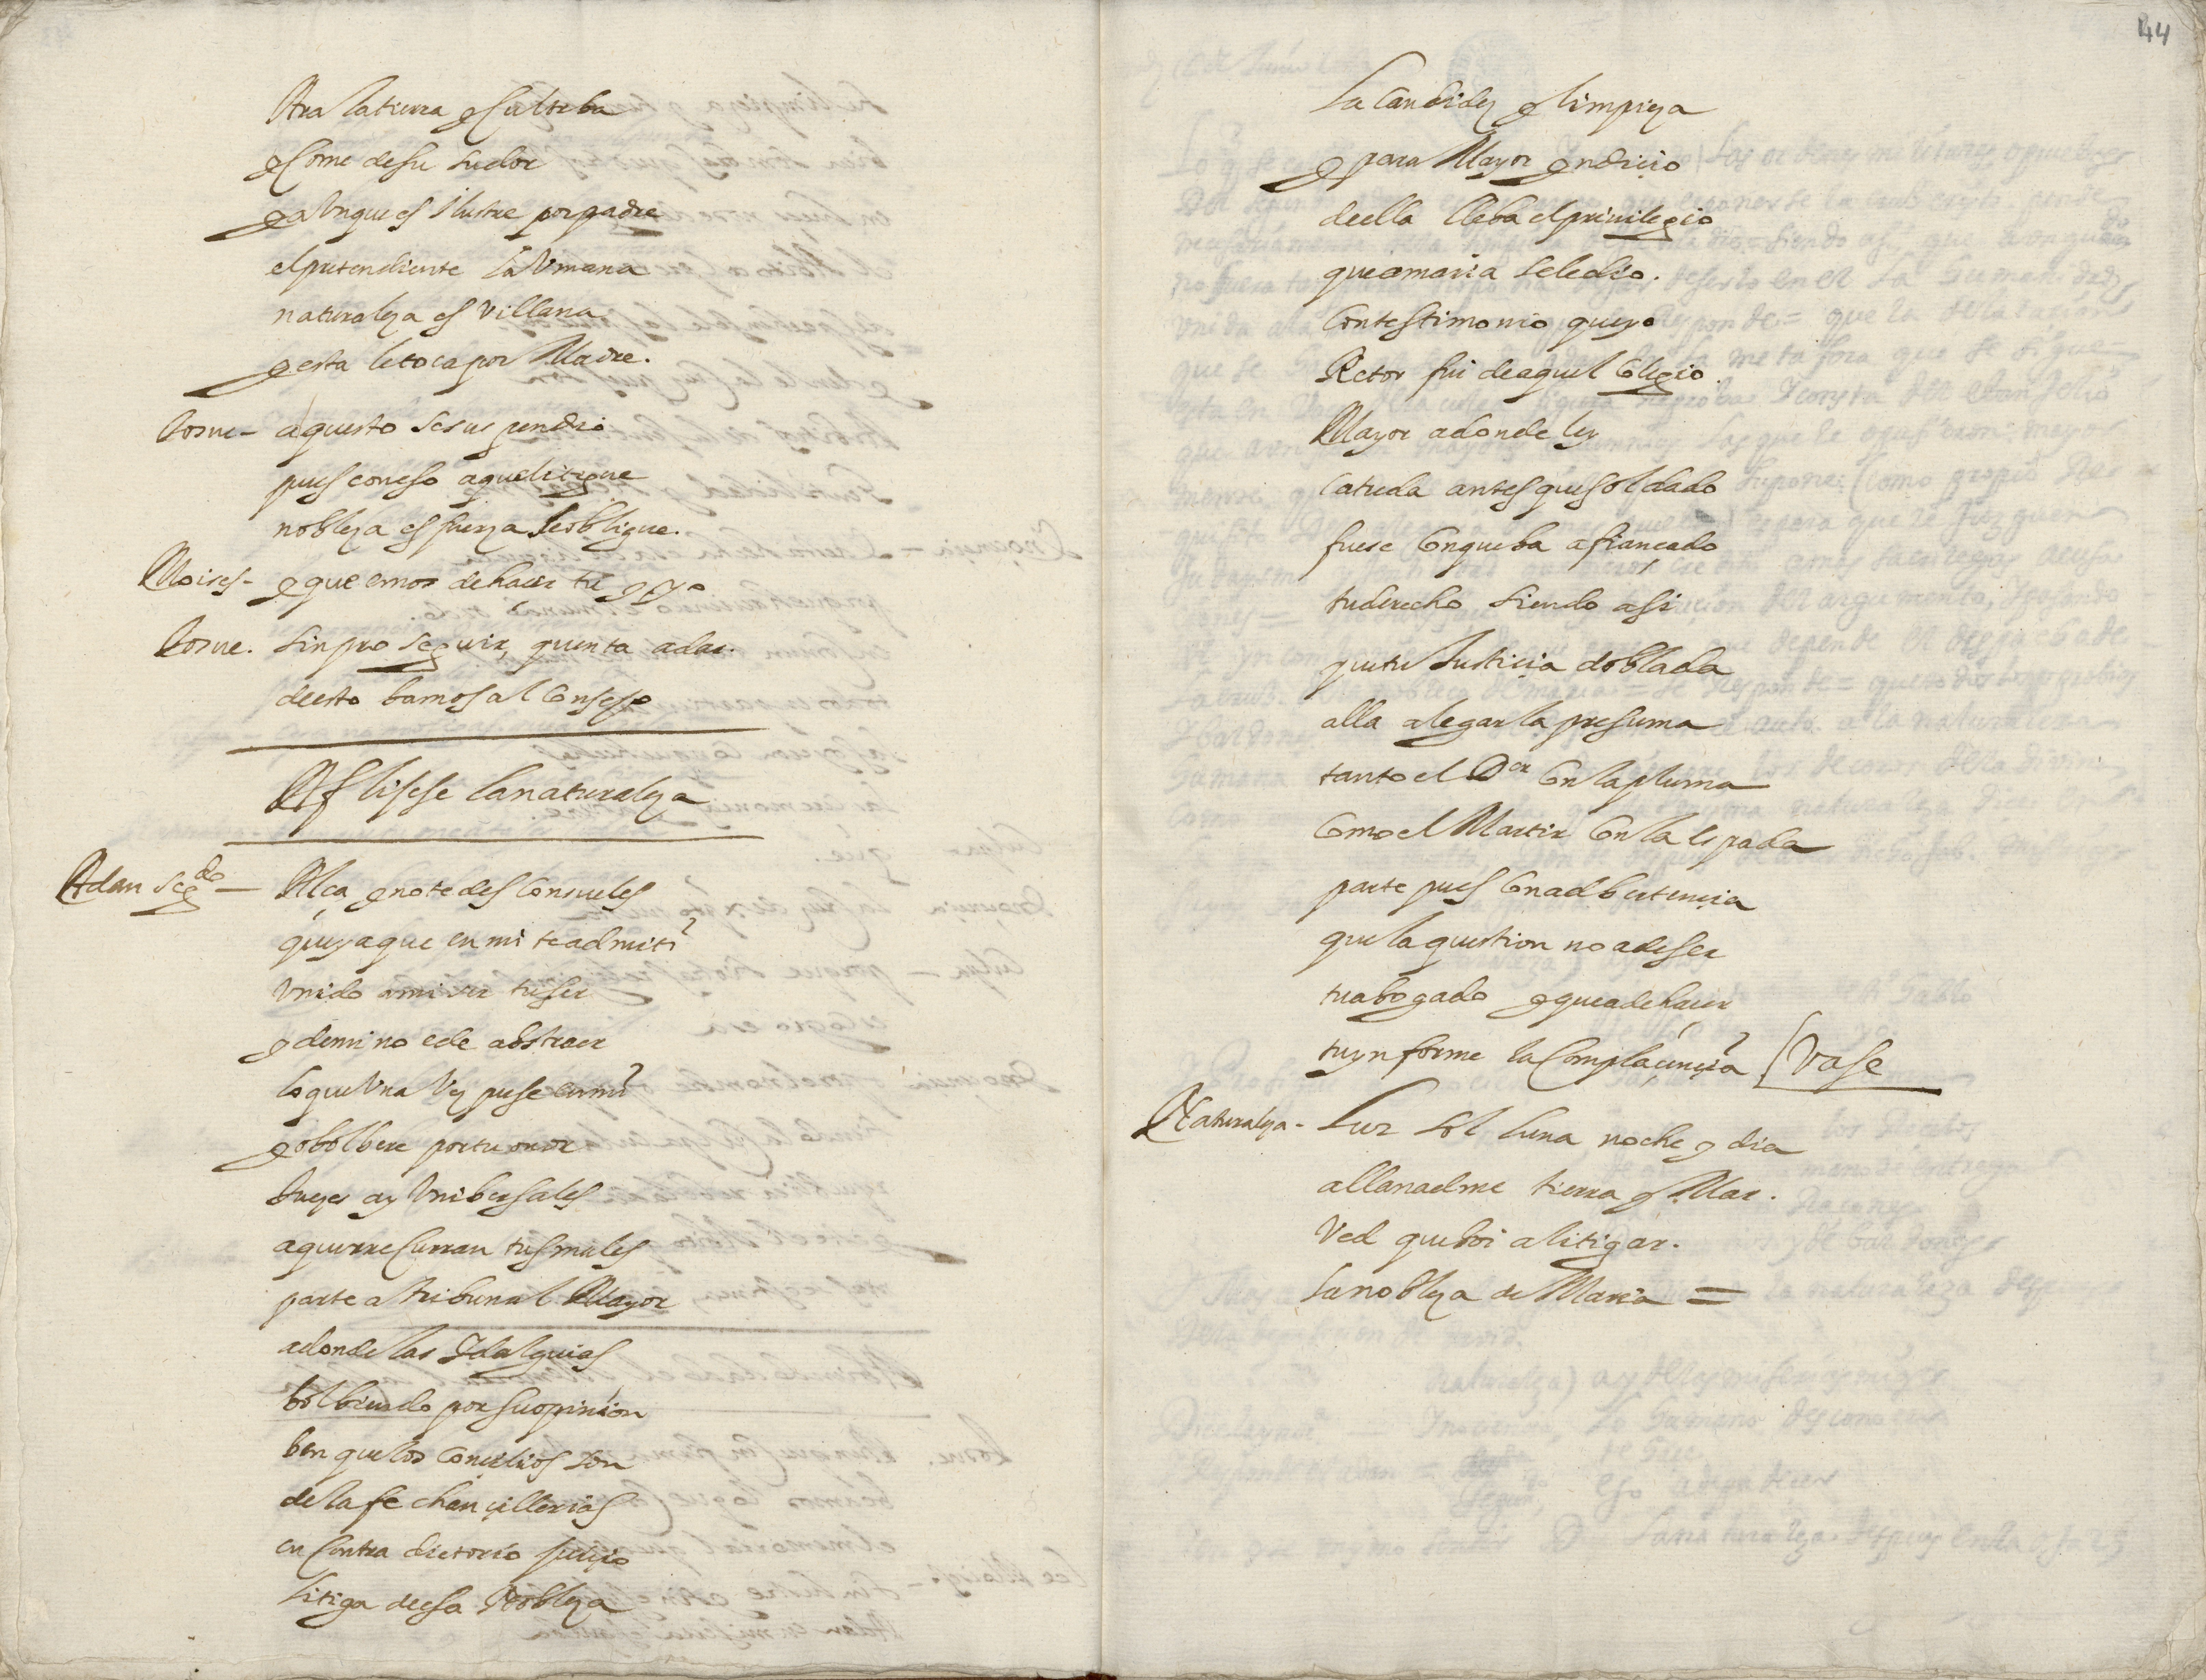 Ara la tierra y Cultiba
y Come de su sudor
y aVnque es ilustre por padre
el pretendiente la Vmana
naturaleza es Villana
y esta le toca por Madre.
Josue- aquesto se suspendio
pues con eso a que litigue
nobleza es fuerza se obligue.
Moises- y que emos de hacer tu y yo
Josue. sin proseguir, quenta a dar
de esto bamos al Consejo
Aflijese la naturaleza
Adan segdo- Alça y no te des Consueles
que ya que en mi te admiti
Vnido a mi ser tu ser
y de mi no e de abstraer
lo que Vna Vez puse en mi
yo bolbere por tu onor
Juezes ay Vnibersales
a quien recurran tus males
parte a tribunal Mayor
adonde las ydalguias
bolbiendo por su opinion
ben que los Concilios son
de la fe chançillerias
en Contradictorio juiçio
litiga de esa Nobleza
44
la Candidez y limpieza
y para Mayor yndiçio
de ella lleba el priuilegio
que a maria se le dio.
Con testimonio que yo
Retor fui de aquel Colegio
Mayor a donde ley
Catreda antes que soldado
fuese Con que ba afiançado
tu derecho siendo asi
que tu Justiçia doblada
alla alegarla presuma
tanto el Dor Con la pluma
Como el Martir Con la espada
parte pues Con adbertençia
que la question no a de ser
tu abogado y que a de haçer
tu ynforme la Complaçençia (Vase
Naturaleza- Luz sol luna noche y dia
allanadme tierra y Mar.
Ved que boi a litigar.
la nobleza de Maria =